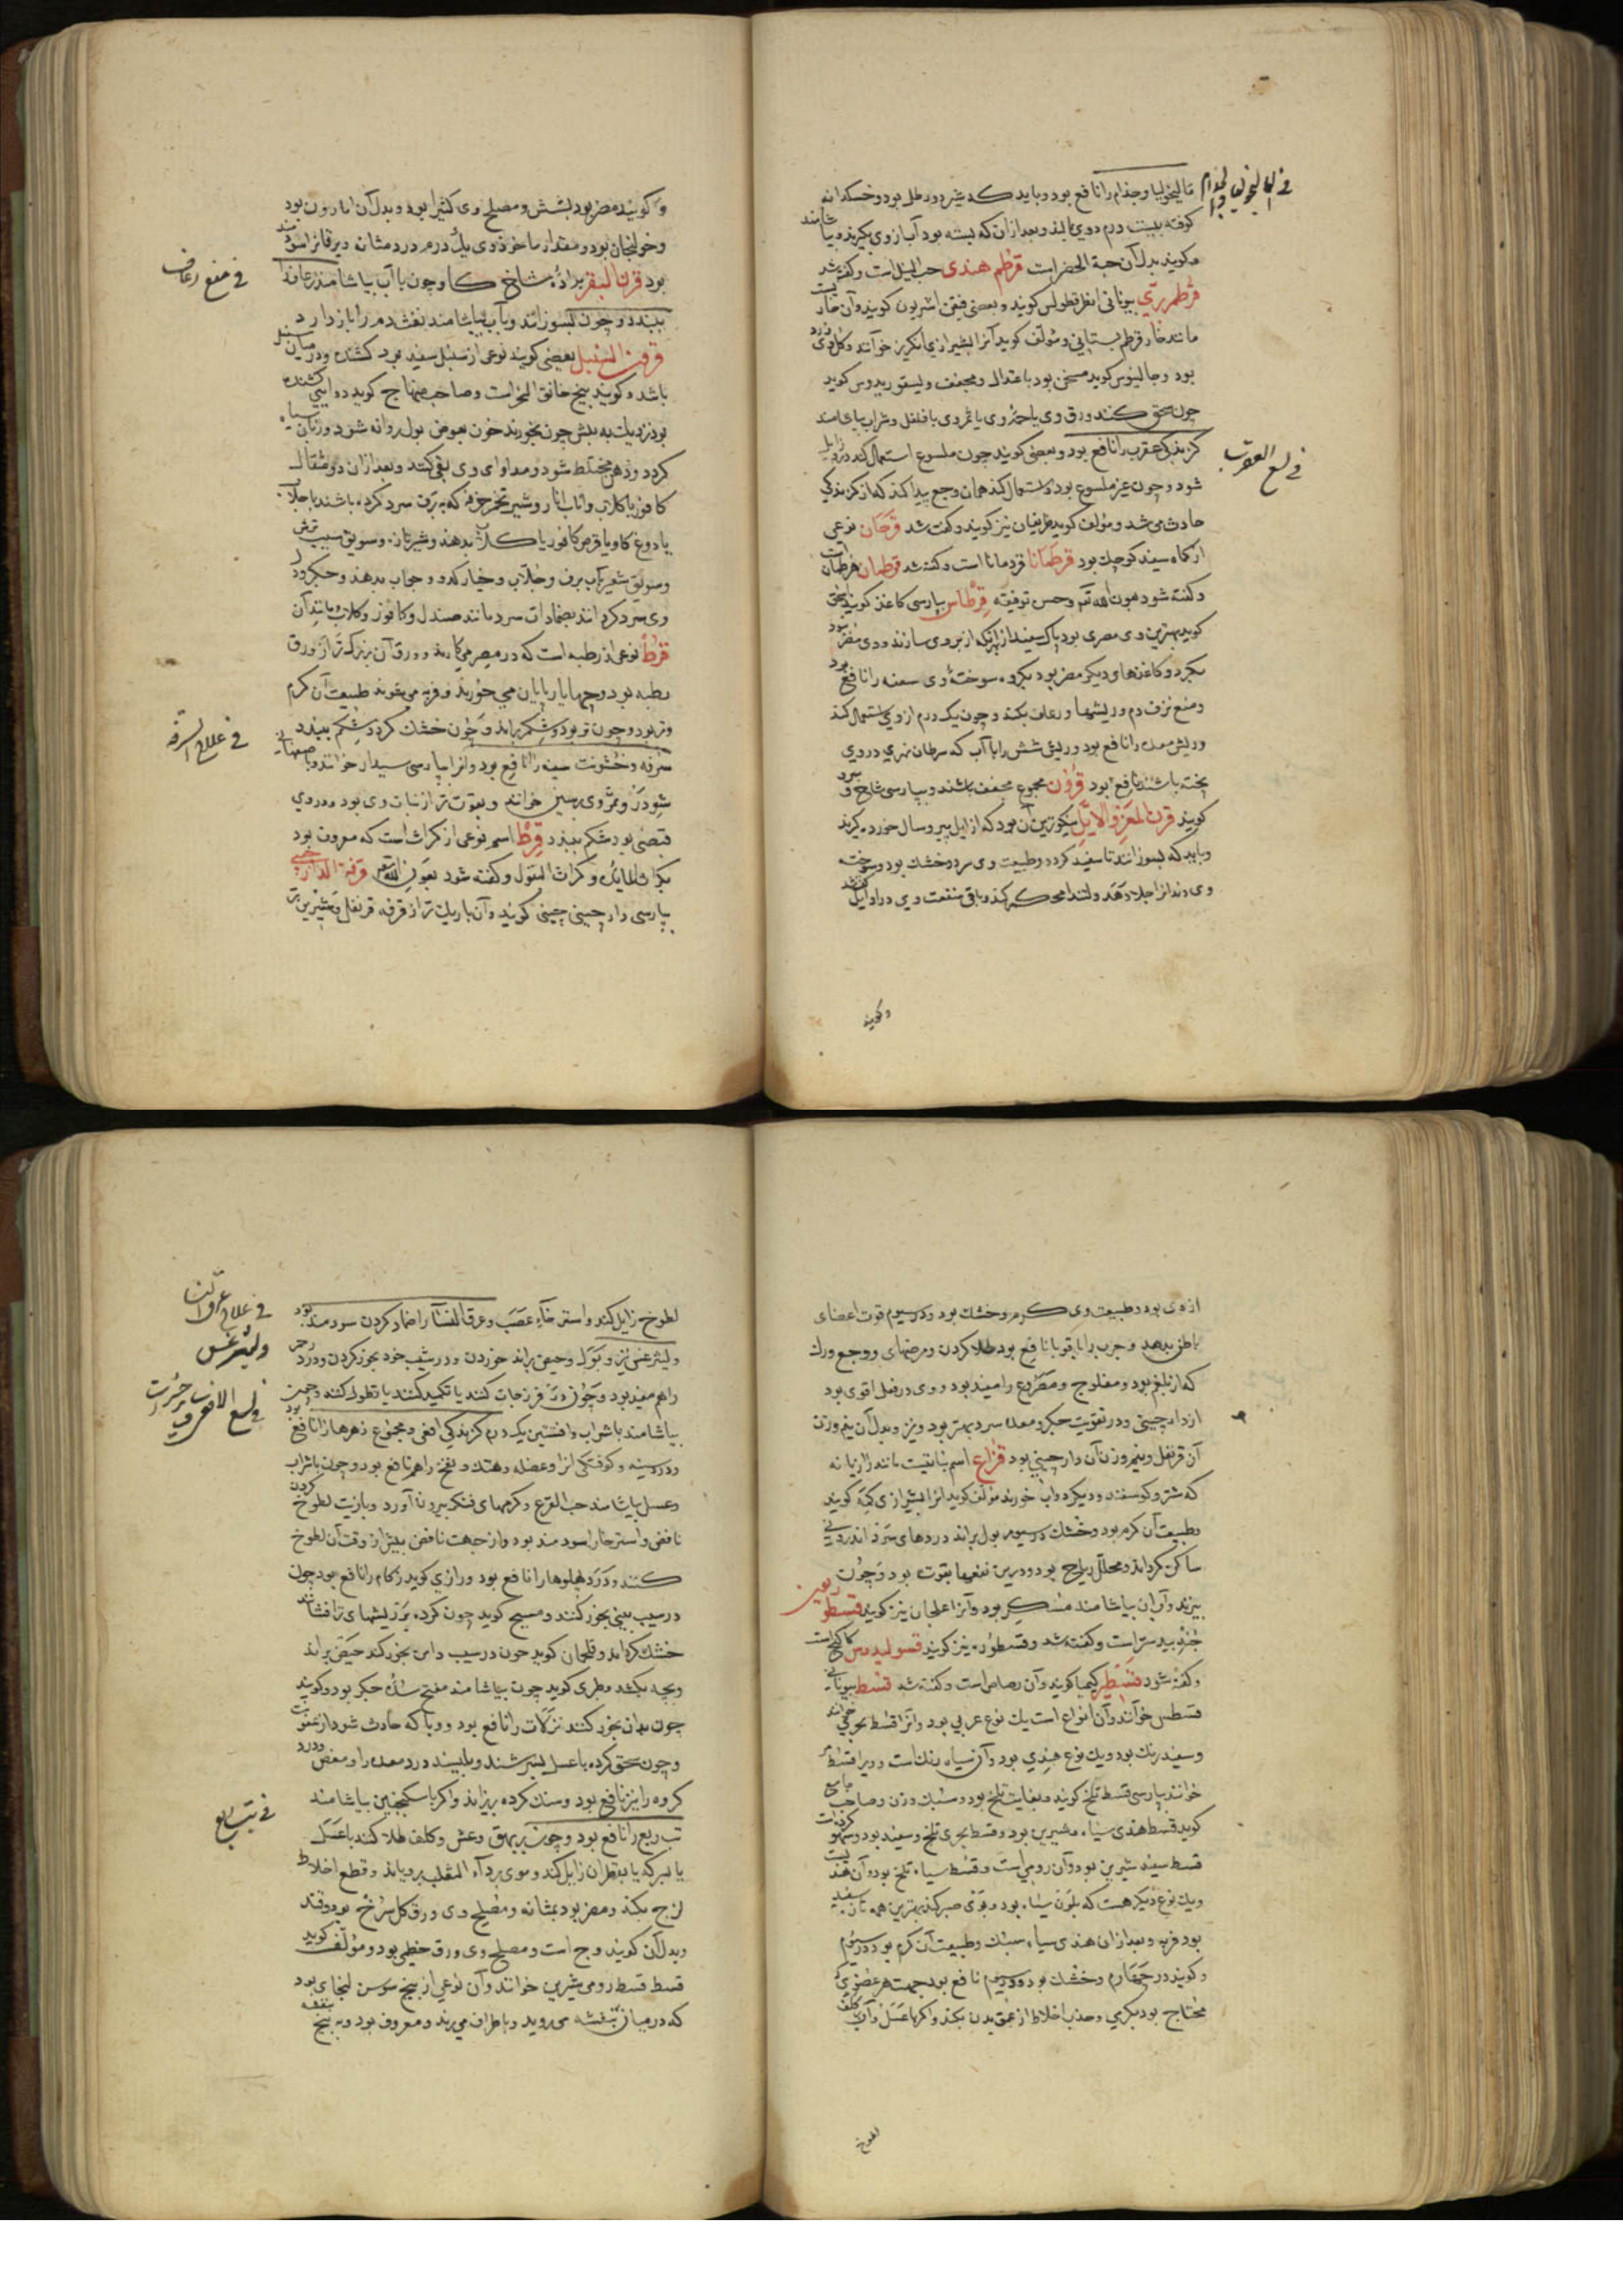 فی المالیخولیا والجذام
مالیخولیا وجذام را نافع بود و باید که شیر دو رطل بود و خسکدانه
کوفته بیست درم در وی مالند و بعد ازان که بسته بود آب از وی بگیرند و بیاشامند
و گویند بدل آن حبة الخضراست قرطم هندی حب النیل است و گفته شد
قرطم بری بیونانی اطرقطولس گویند و بعضی فیقن اغریون گویند و آن خاریست
مانند خار قرطم بستانی و مؤلف گوید آنرا بشیرازی کریز خوانند و گل وی زرد
بود و جالینوس گوید مسخن بود باعتدال و مجفف و لیسقوریدوس گوید
چون سحق کنند ورق وی یا حمهٔ وی یا ثمر وی با فلفل و شراب بیاشامند
فی لسع العقرب
گزندگی عقرب را نافع بود و بعضی گویند چون ملسوع استعمال کند درد زایل
شود و چون غیر ملسوع بود و استعمال کند همان وجع پیدا کند که از گزندگی
حادث می شد و مؤلف گوید نیز گویند و گفته شد قرحان نوعی
از کماه سفید کوچک بود قرطمانا قردمانا است و گفته شد قرطمان هرطمان است
و گفته شود بعون الله تعالی و حسن توفیقه قرطاس بپارسی کاغذ گویند
گوید بهترین وی مصری بود پاک سفید از بهر آنکه از بردی سازند و وی مضر بود
بگرده و کاغذهای دیگر مضر بود بگرده سوختهٔ وی سعفه را نافع بود
و منع نزف دم و ریشها و رعاف بکند و چون یک درم از وی استعمال کند
و ریش معده را نافع بود و ریش شش را با آب که سرطان نهری در وی
پخته باشند نافع بود قرون مجموع مجفف باشند و بپارسی شاخ و سرو
گویند قرن المعز والایل نیکوترین آن بود که از ایل پیر و سال خورده گیرند
و باید که بسوزانند تا سفید گردد و طبیعت وی سرد و خشک بود و سوخته
وی دندانرا جلا دهد و لثه را محکم کند و باقی منفعت وی در ایل گفته شد
و گویند
و گویند مضر بود بشش و مصلح وی کثیرا بود و بدل آن اسارون بود
و خولنجان بود و مقدار ماخوذ وی یک درم درد مثانه و یرقانرا سودمند
بود قرن البقر برادهٔ شاخ گاو چون با آب بیاشامند رعاف را
فی منع رعاف
ببندد و چون بسوزانند و با آب بیاشامند نفث دم را باز دارد
قرون السنبل بعضی گویند نوعی از سنبل سفید بود کشنده و در میان سنبل
باشد و گویند بیخ خانق النمراست و صاحب منهاج گوید دوایی کشنده
بود نزدیک به بیش چون بخورند خون بعوض بول روانه شود و زبان سیاه
گردد و ذهن مختلط شود و مداوای وی بقی کنند و بعد ازان دو مثقال
کافور با گلاب و آب انار و شیر تخم خرفه که به برف سرد کرده باشند با جلاب
یا دوغ گاو یا قرص کافور یا گلاب بدهند و شیر تازه و سویق سیب ترش
و سویق شعیر بآب برف و جلاب و خیار کدو و جواب بدهند و جگر و دل
وی سرد گردانند بضمادات سرد مانند صندل و کافور و گلاب و مانند آن
قرط نوعی از رطبه است که در مصر می کارند و ورق آن بزرگ تر از ورق
رطبه بود و چهارپایان می خورند و فربه می شوند طبیعت آن گرم
و تر بود و چون تر بود شکم براند و چون خشک گردد شکم ببندد
فی علاج السرفه
سرفه و خشونت سینه را نافع بود و آنرا بپارسی سپدار خوانند و باصفهانی
شودر و ثمر وی برسین خوانند و بقوت تر از نبات وی بود و در وی
قبضی بود شکم ببندد قرط اسم نوعی از کراث است که معروف بود
بکراث المایده و کراث البقول و گفته شود بعون الله تعالی قرفة الدارچینی
بپارسی دارچینی چینی گویند و آن باریک تر از قرفه قرنفل و شیرین تر
از وی بود و طبیعت وی گرم و خشک بود در سیوم قوت اعضای
باطن بدهد و جرب را با قوبا نافع بود طلا کردن و مرضهای و وجع ورک
که از بلغم بود و مفلوج و مصروع را مفید بود و وی در فعل اقوی بود
از دارچینی و در تقویت جگر و معده سرد بهتر بود و نیز و بدل آن نیم وزن
آن قرنفل و نیم وزن آن دارچینی بود قزاح اسم نباتیست مانند رازیانه
که شتر و گوسفند و دیگر دواب خورند مؤلف گوید آنرا بشیرازی کمه گویند
و طبیعت آن گرم بود و خشک در سیوم بول براند دردهای سرد اندرونی
ساکن گرداند و محلل ریاح بود و درین نفعها بقوت بود و چون
بپزند و آب آن بیاشامند مسکر بود و آنرا علجان نیز گویند قسطوریون
جندبیدستر است و گفته شد و قسطوره نیز گویند قسولیدوس کماکنج است
و گفته شود قسطیر کیمیا گویند و آن رصاص است و گفته شد قسط بیونانی
قسطس خوانند و آن انواع است یک نوع عربی بود و آنرا قسط بحری خوانند
و سفید رنگ بود و یک نوع هندی بود و آن سیاه رنگ است و ویرا قسط مر
خوانند بپارسی قسط تلخ گویند و بغایت تلخ بود و سبک وزن و صاحب جامع
گوید قسط هندی سیاه و شیرین بود و قسط بحری تلخ و سفید بود و سهو کرده است
قسط سفید شیرین بود و آن رومی است و قسط سیاه تلخ بود و آن هندیست
و یک نوع دیگر هست که بلون سیاه بود و بوی صبر کند بهترین همه تازه سفید
بود فربه و بعد ازان هندی سیاه سبک و طبیعت آن گرم بود در سیوم
و گویند در چهارم و خشک بود در سیوم نافع بود جهت هر عضوی که
محتاج بود بگرمی و جذب اخلاط از عمق بدن بکند و اگر با عسل و آب بکلف
لطوخ
لطوخ زایل کند و استرخاء عصب و عرق النسا را ضماد کردن سودمند بود
فی علاج عرق النسا
ولیثرغس
ولیثرغس نیز و بول و حیض براند خوردن و در شیب خود بخور کردن و درد رحم
را هم مفید بود و چون در فرزجات کنند یا تکمید کنند یا نطول کنند و چون
فی لسع الافعی
بیاشامند با شراب و افسنتین یک درم گزندگی افعی و مجموع زهرها را نافع بود
و درد سینه و کوفتگی آنرا و عضله و هتک و نفخ را هم نافع بود و چون با شراب
و عسل بیاشامند حب القرع و کرمهای شکم بیرون آورد و با زیت لطوخ کردن
نافض و استرخا را سودمند بود و از جهت نافض پیش از وقت آن لطوخ
کنند و درد پهلوها را نافع بود و رازی گوید زکام را نافع بود چون
در سیب بینی بخور کنند و مسیح گوید چون کرده بر ریشهای تر افشانند
خشک گرداند و قلهمان گوید چون در سیب دامن بخور کند حیض براند
و بچه بکشد و طبری گوید چون بیاشامند مفتح سدهٔ جگر بود و گویند
چون بدان بخور کنند نزلات را نافع بود و وبا که حادث شود از عفونت
و چون سحق کرده با عسل بسرشند و بلیسند درد معده را و مغص و درد
گروه را نیز نافع بود و سنگ گرده بریزاند و اگر با سکنجبین بیاشامند
فی تب ربع
تب ربع را نافع بود و چون بر بهق و نمش و کلف طلا کنند با عسل
یا بسرکه یا بقطران زایل کند و موی بر داء الثعلب برویاند و قطع اخلاط
لزج بکند و مضر بود بمثانه و مصلح وی ورق گل سرخ بود و قند
و بدل آن گویند وج است و مصلح وی ورق خطمی بود و مؤلف گوید
قسط قسط رومی شیرین خوانند و آن نوعی از بیخ سوسن لنجای بود
که در میان بنفشه می روید و باطراف می برند و معروف بود به بیخ بنفشه